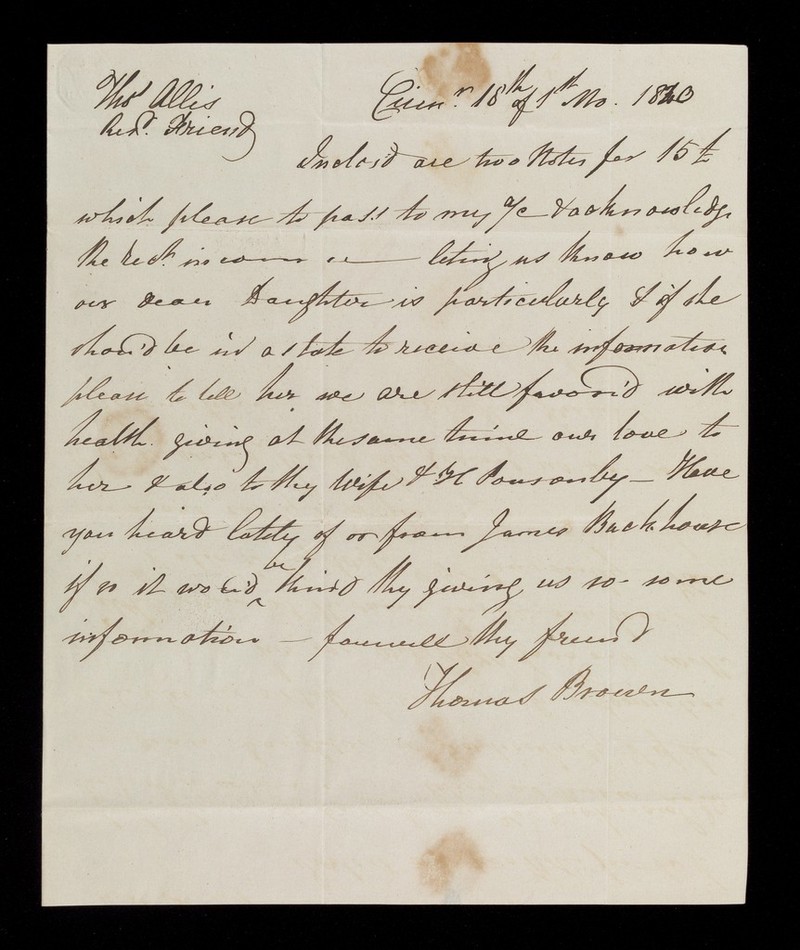 Thos Allis Cirenr. 18th of 1st Mo. 18
Resd. Friend
Inclos'd are two Notes for 15£
which please to pass to my a/c & acknowledge
the rect. in course — leting us know how
our dear Daughter is particularly & if she
shou'd be in a state to receive the information
please to tell her we are still favor'd with
health giving at the same time our love to
her & also to thy Wife & H Ponsonby — Have
you heard lately of or from James Backhouse
if so it wou'd be kind thy giving us so some
information — farewell thy friend
Thomas Brown